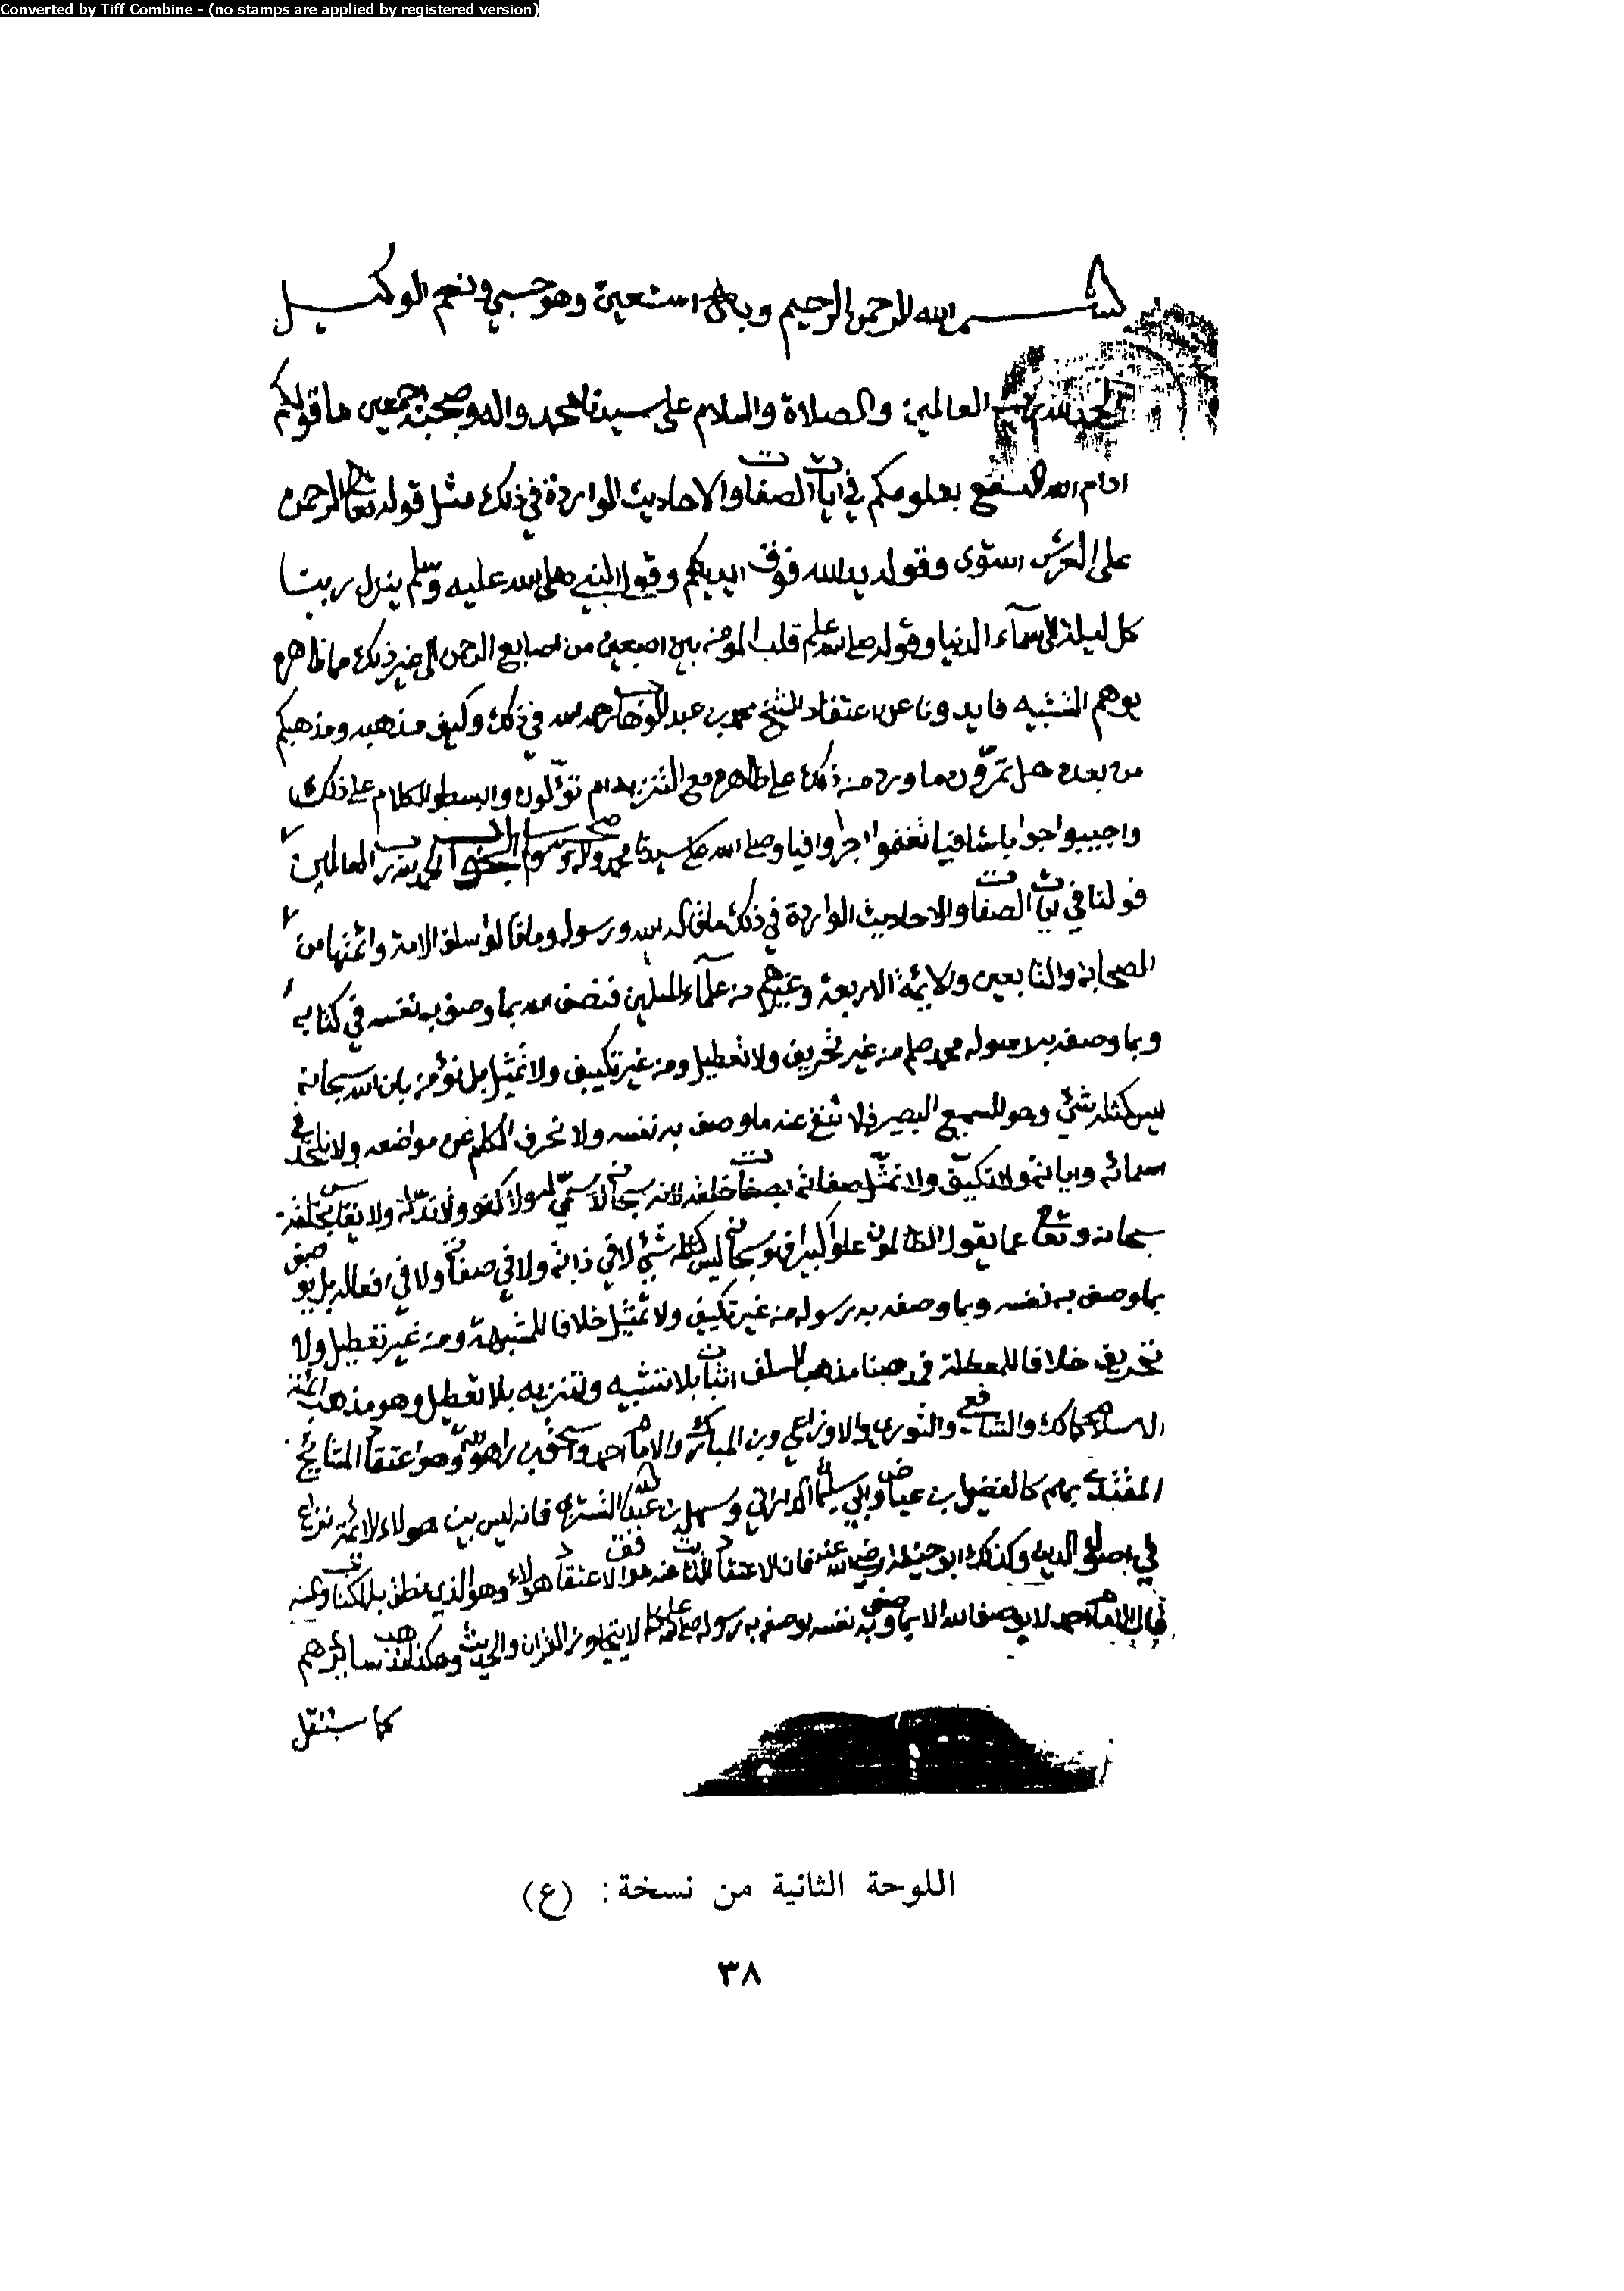 Converted by Tiff Combine - (no stamps are applied by registered version)
بسم الله الرحمن الرحيم وبالله استعين وهو حسبي ونعم الوكيل
الحمد لله رب العالمين والصلاة والسلام على سيدنا محمد واله وصحبه اجمعين ما قولكم
ادام الله النفع بعلومكم في ايات الصفات والاحاديث الواردة في ذلك مثل قوله تعالى الرحمن
على العرش استوى وقوله يد الله فوق ايديهم وقول النبي صلى الله عليه وسلم ينزل ربنا
كل ليلة الى سمآء الدنيا وقوله صلى الله عليه وسلم قلب المومن بين اصبعين من اصابع الرحمن الى غير ذلك مما ظاهره
يوهم التشبيه فايدونا عن اعتقاد الشيخ محمد بن عبد الوهاب رحمه الله في ذلك وكيف مذهبه ومذهبكم
من بعده هل تمرّون ما ورد من ذلك على ظاهره مع التنزيه ام تؤلون وابسطوا الكلام على ذلك
واجيبوا جوابا شافيا تغنموا اجرا وافيا وصلى الله على سيدنا محمد واله وسلم الجواب الحمد لله رب العالمين
قولنا في ايات الصفات والاحاديث الواردة في ذلك ما قاله الله ورسوله وما قاله سلف الامة وائمتها من
الصحابة والتابعين والائمة الاربعة وغيرهم من علمآء المسلمين فنصف الله بما وصف به نفسه في كتابه
وبما وصفه به رسوله محمد صلعم من غير تحريف ولا تعطيل ومن غير تكييف ولا تمثيل بل نؤمن بان الله سبحانه
ليس كمثله شئ وهو السميع البصير فلا ننفي عنه ما وصف به نفسه ولا نحرف الكلم عن مواضعه ولا نلحد في
اسمائه واياته ولا نكيّف ولا نمثّل صفاته بصفات خلقه لانه سبحانه لا سمّي له ولا كفو ولا ندّ له ولا يقاس بخلقه
سبحانه وتعالى عما يقول الظالمون علوا كبيرا فهو سبحانه ليس كمثله شئ لا في ذاته ولا في صفاته ولا في افعاله بل يوصف
بما وصف به نفسه وبما وصفه به رسوله من غير تكييف ولا تمثيل خلافا للمشبهة ومن غير تعطيل ولا
تحريف خلافا للمعطلة فمذهبنا مذهب السلف اثبات بلا تشبيه وتنزيه بلا تعطيل وهو مذهب ائمة
الاسلام كمالك والشافعي والثوري والاوزاعي وبن المبارك والامام احمد واسحق بن راهويه وهو اعتقاد المشايخ
المقتدى بهم كالفضيل بن عياض وابي سليمان الداراني وسهل بن عبد الله التستري فانه ليس بين هولاء الائمة نزاع
في اصول الدين وكذلك ابو حنيفة رضي الله عنه فان الاعتقاد الثابت عنه موافق الاعتقاد هولاء وهو الذي نطق به الكتاب والسنه
قال الامام احمد لا يوصف الله الا بما وصف به نفسه او وصفه به رسوله صلى الله عليه وسلم لا يتجاوز القران والحديث وهكذا مذهب سائرهم
كما سننقل
اللوحة الثانية من نسخة: (ع)
٣٨